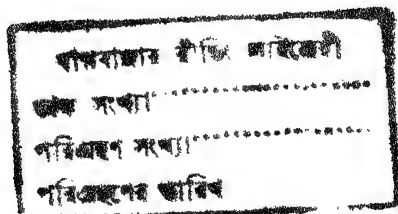 বাগবাজার রীডিং লাইব্রেরী
ডাক সংখ্যা
পরিগ্রহণ সংখ্যা
পরিগ্রহণের তারিখ